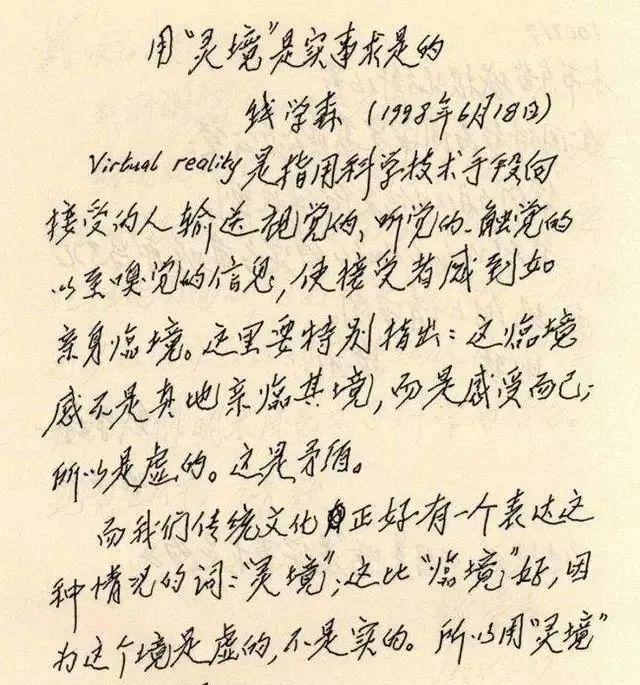 用“灵境”是实事求是的
钱学森(1998年6月18日)
Virtual reality是指用科学技术手段向
接受的人输送视觉的、听觉的、触觉的
以至嗅觉的信息,使接受者感到如
亲身临境。这里要特别指出:这临境
感不是真地亲临其境,而是感受而已;
所以是虚的。这是矛盾。
而我们传统文化正好有一个表达这
种情况的词:“灵境”;这比“临境”好,因
为这个境是虚的,不是实的。所以用“灵境”